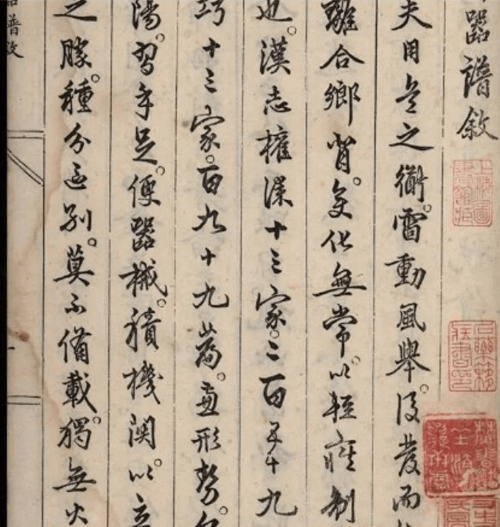 器譜敘
夫用兵之術。雷動風舉。後發而
離合鄉背。變化無常。以輕疾制
也。漢志權謀十三家。二百五十九
巧十三家。百九十九篇。兼形勢。
陽。習手足。便器械。積機関。以立
之勝。種分區別。莫不備載。獨無火
器譜敘